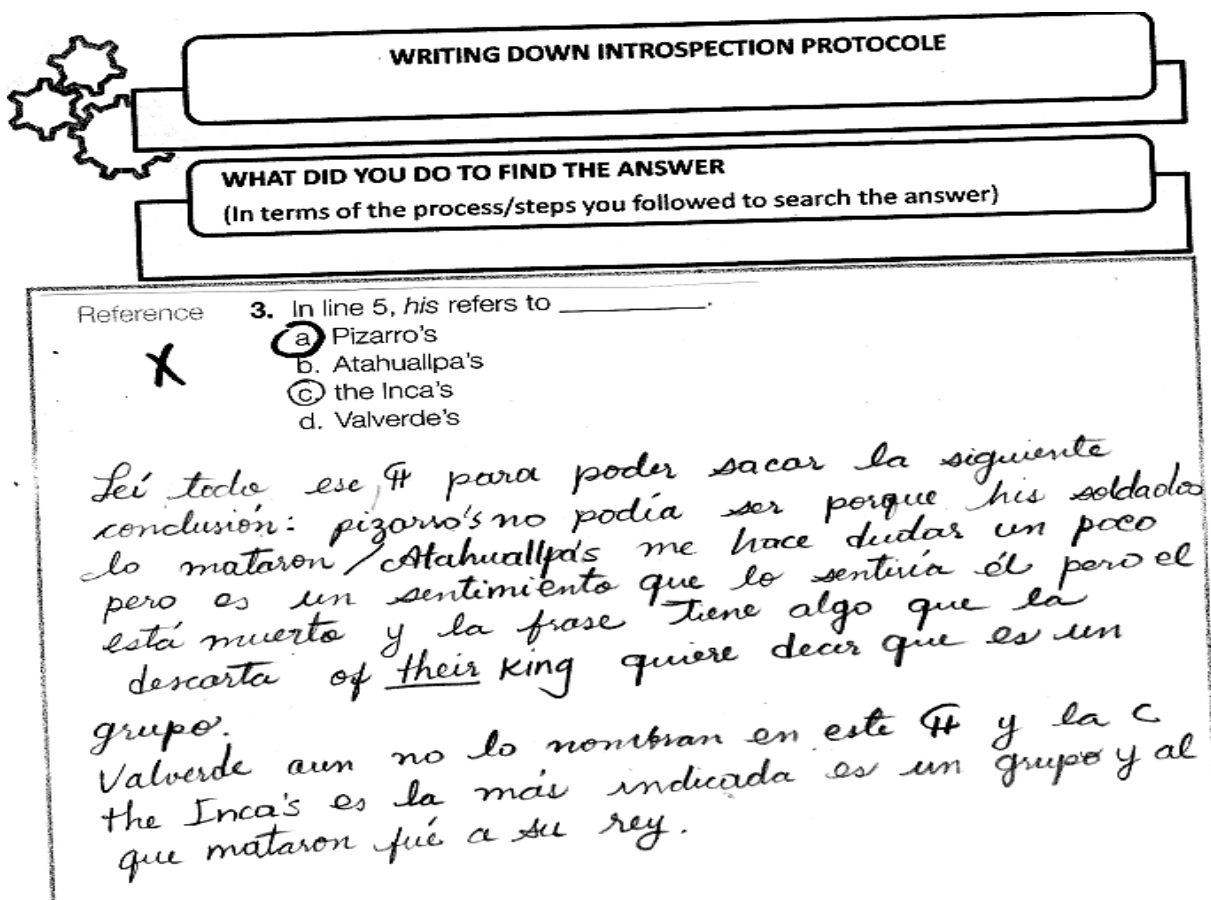 WRITING DOWN INTROSPECTION PROTOCOLE
WHAT DID YOU DO TO FIND THE ANSWER
(In terms of the process/steps you followed to search the answer)
Reference 3. In line 5, his refers to __________.
X
a Pizarro's
b. Atahuallpa's
c. the Inca's
d. Valverde's
Leí todo ese ¶ para poder sacar la siguiente
conclusión: pizarro's no podía ser porque his soldados
lo mataron / Atahuallpa's me hace dudar un poco
pero es un sentimiento que lo sentiría él pero el
está muerto y la frase tiene algo que la
descarta of their king quiere decir que es un
grupo.
Valverde aun no lo nombran en este ¶ y la C
the Inca's es la más indicada es un grupo y al
que mataron fué a su rey.